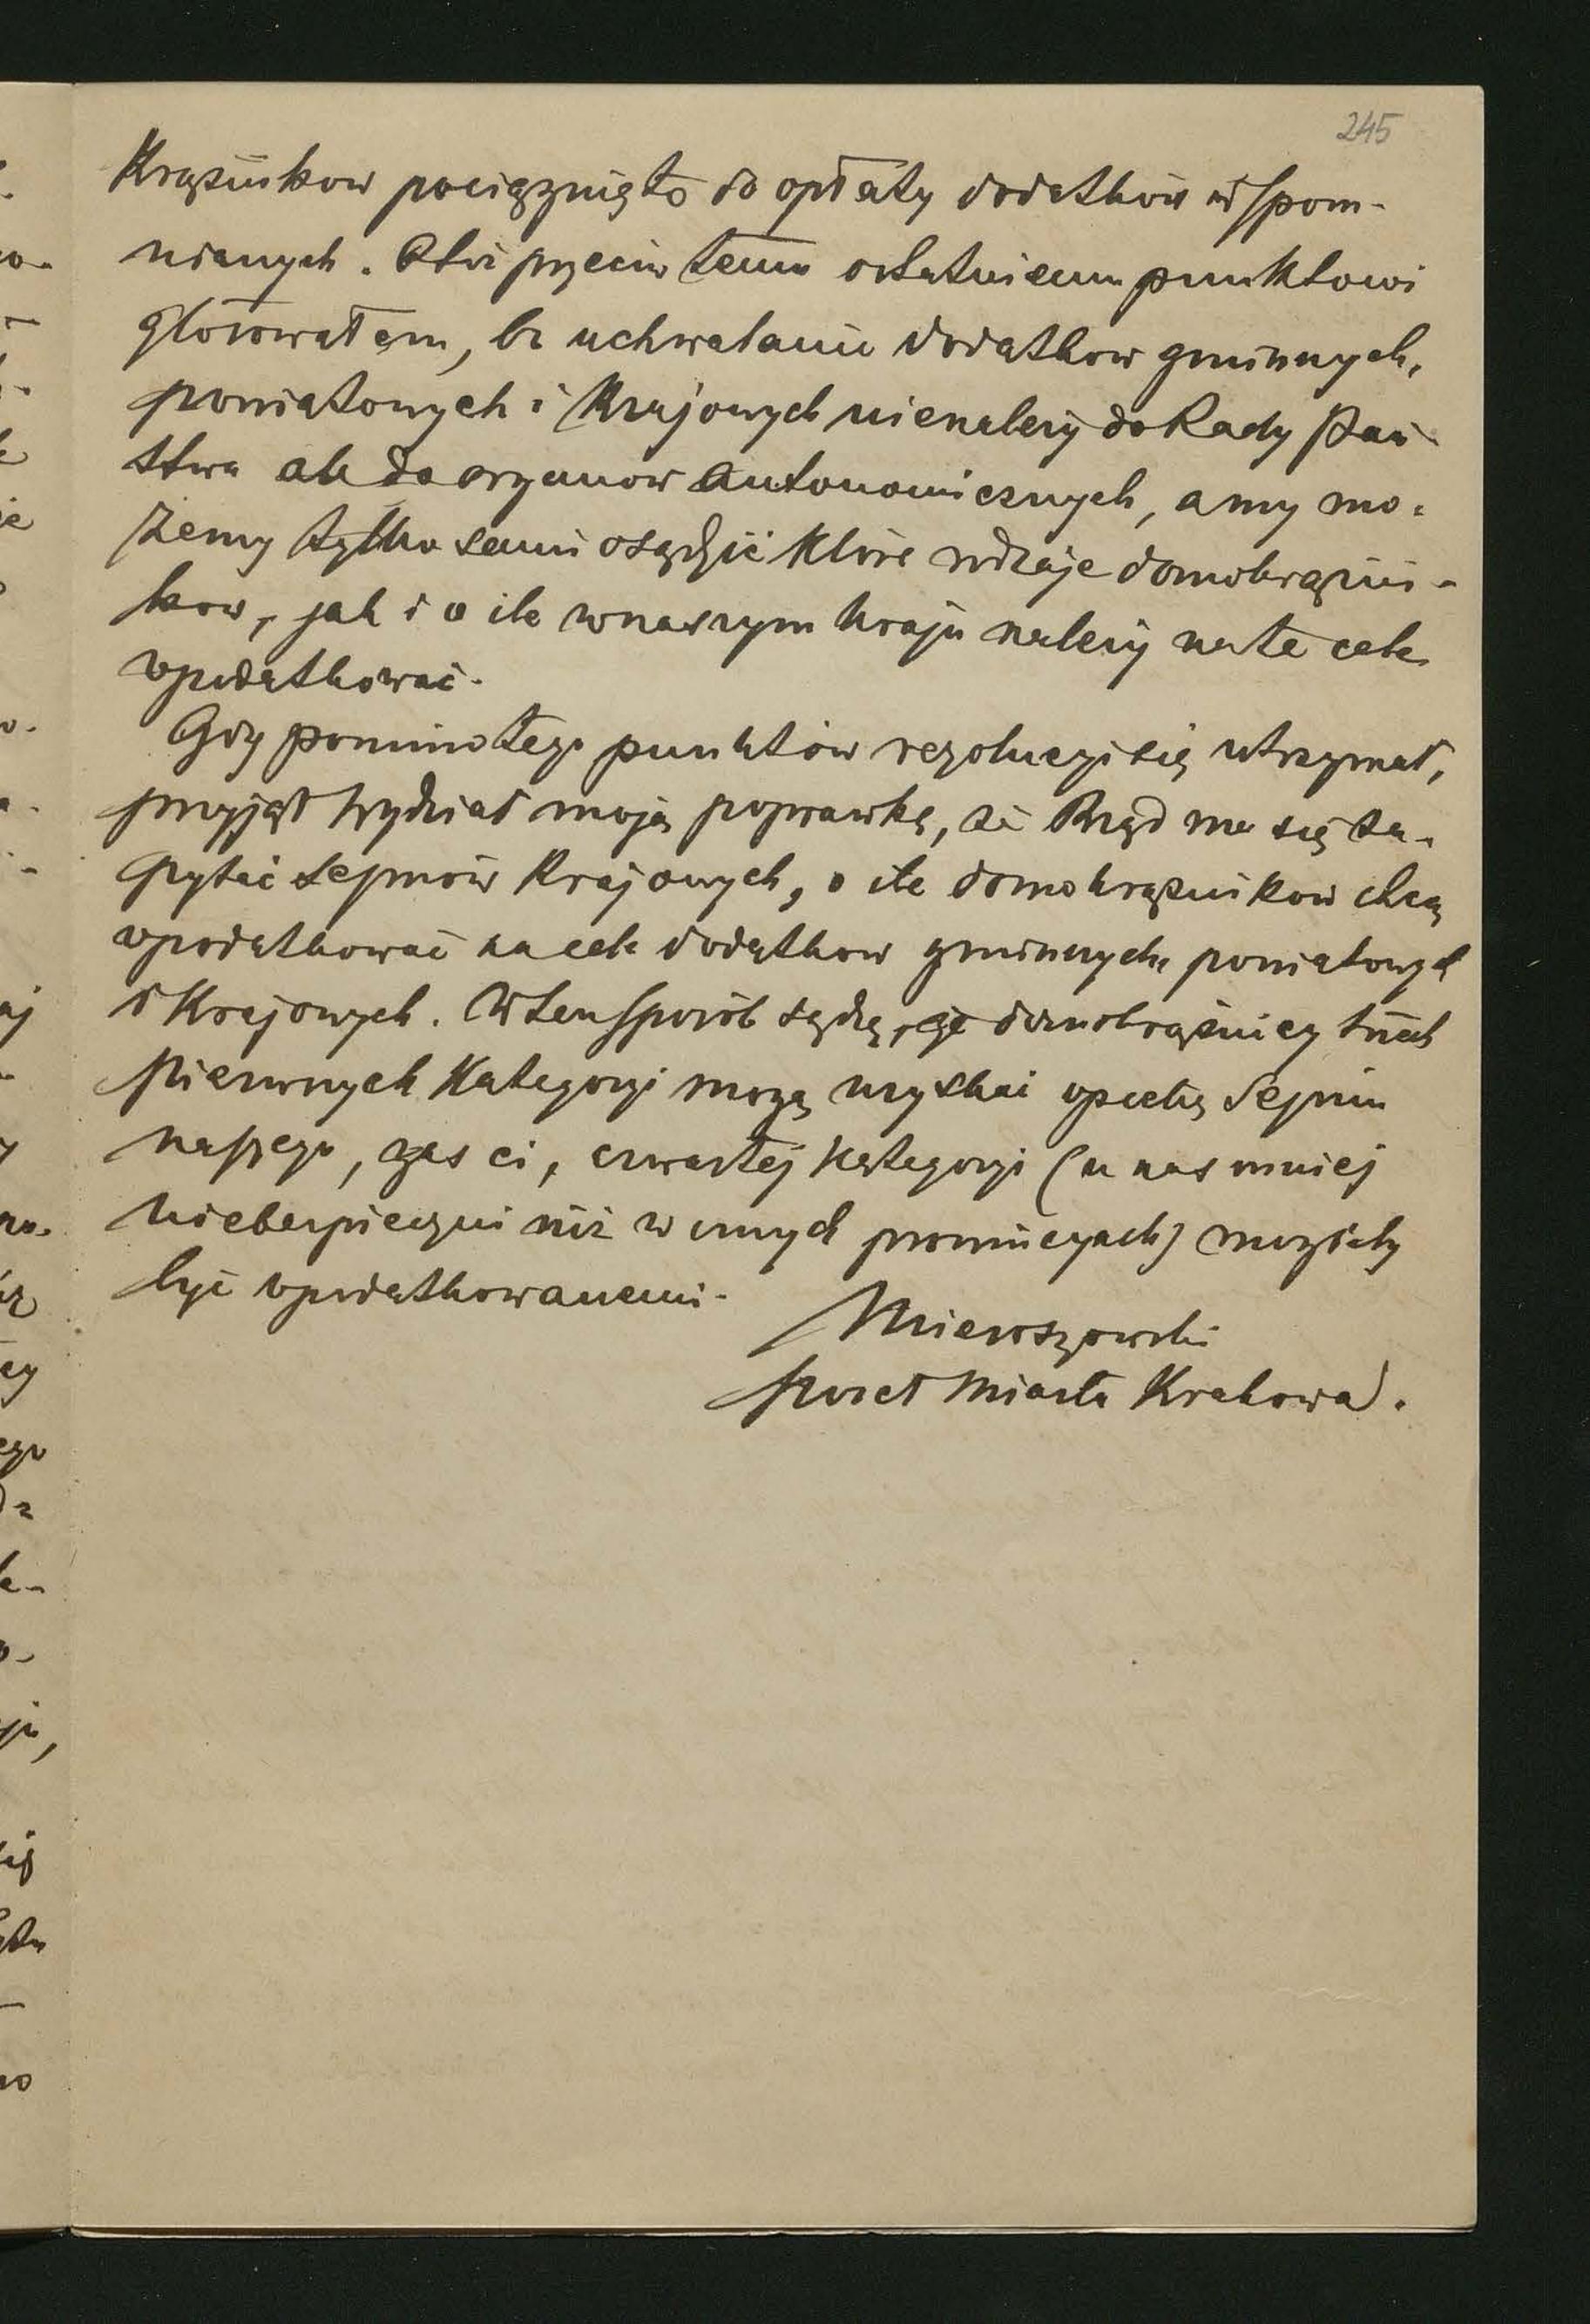 245
Krążników pociągnięto do opłaty dodatków wspom-
nianych. Otóż przeciw temu ostatniemu punktowi
głosowałem, bo uchwalanie dodatków gminnych,
powiatowych i Krajowych nienależy do Rady Pań-
stwa ale do organów autonomicznych, a my mo-
żemy tylko sami osądzić które rodzaje domokrążni-
ków, jak i o ile w naszym kraju należy na te cele
opodatkować.
Gdy pomimo tego punktów rezolucyi się utrzymał,
przyjął Wydział moją poprawkę, że Rząd ma się za-
pytać sejmów Krajowych, o ile domokrążników chcą
opodatkować na cele dodatków gminnych, powiatowych
i Krajowych. W ten sposób sądzę, że domokrążnicy trzech
pierwszych Kategoryi mogą uzyskać opiekę Sejmu
naszego, zaś ci, czwartej Kategoryi (u nas mniej
niebezpieczni niż w innych prowincyach) mogliby
być opodatkowanemi.
Mieroszowski
poseł Miasta Krakowa.